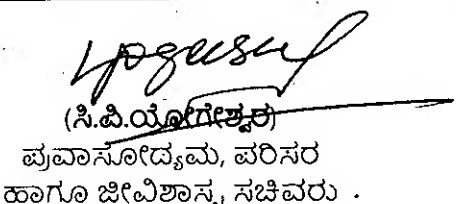 (ಸಿ.ಪಿ.ಯೋಗೇಶ್ವರ)
ಪ್ರವಾಸೋದ್ಯಮ, ಪರಿಸರ
ಹಾಗೂ ಜೀವಿಶಾಸ್ತ್ರ ಸಚಿವರು .